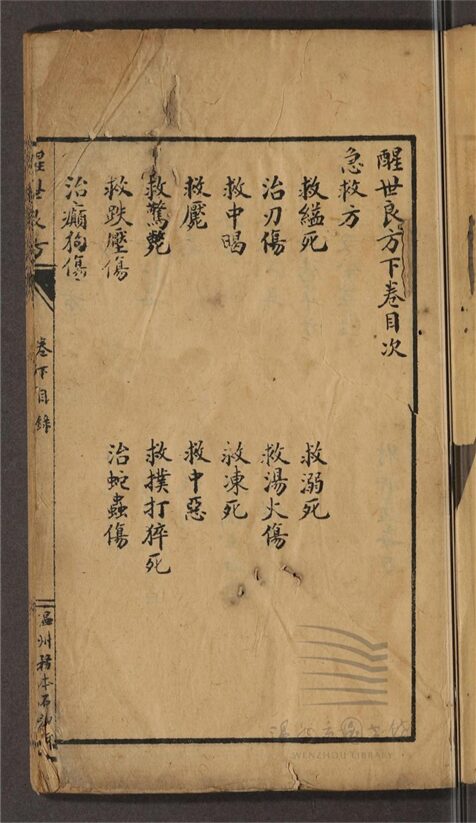 醒世良方下卷目次
急救方
救縊死
救溺死
治刃傷
救湯火傷
救中暍
救凍死
救魘
救中惡
救驚斃
救撲打猝死
救跌壓傷
治蛇蟲傷
治癲狗傷
醒世良方
卷下目錄
溫州務本石印
WENZHOU LIBRARY